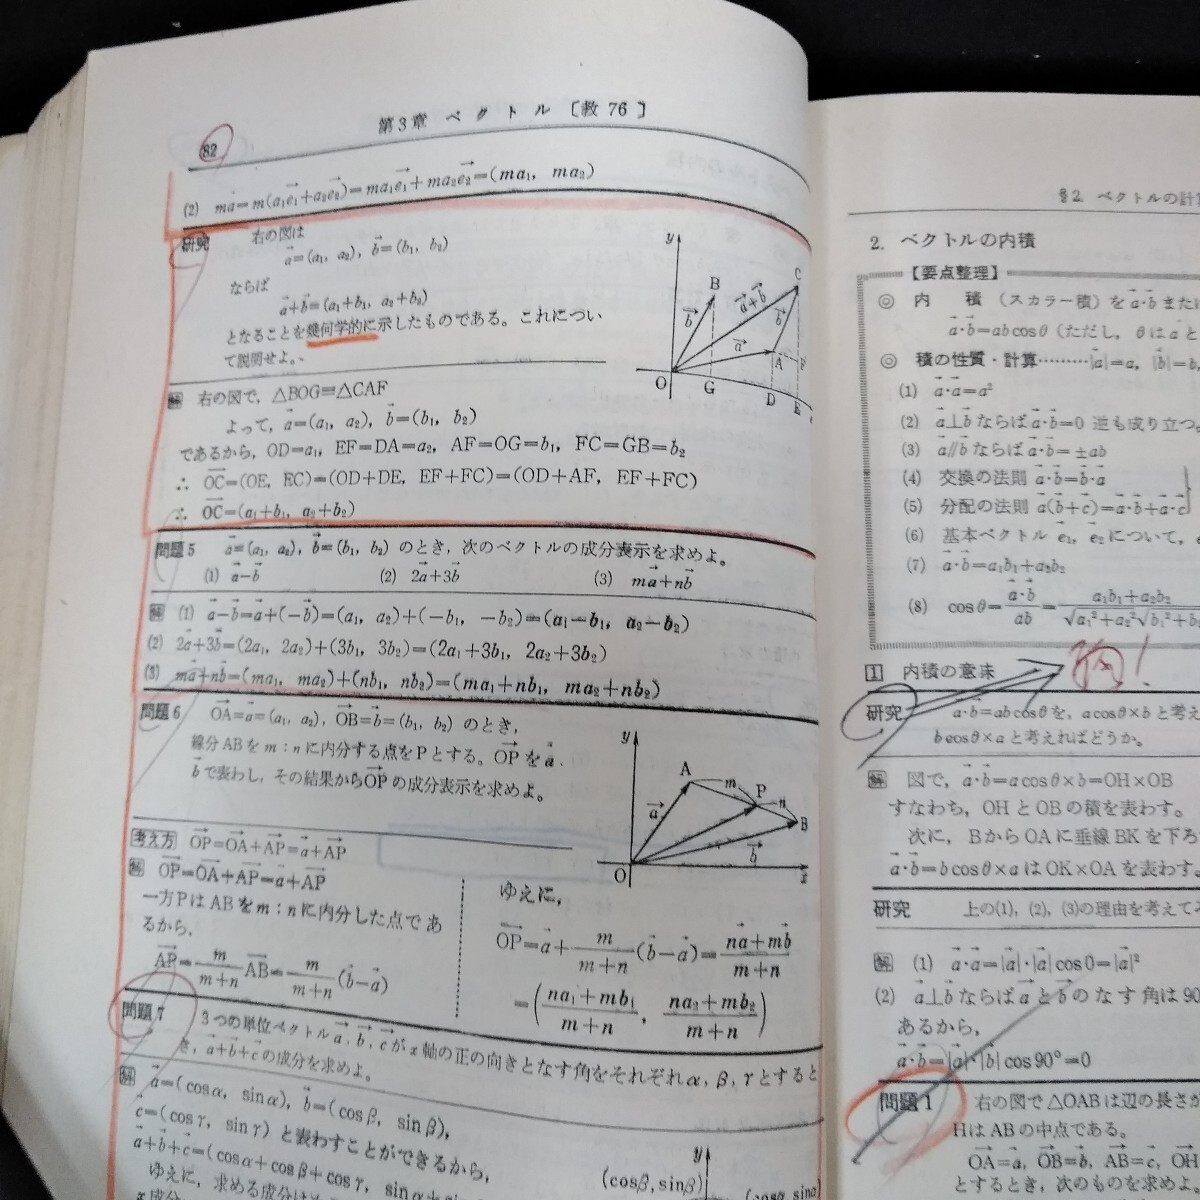 第3章 ベクトル 〔教 76〕
82
(2) ma=m(a₁e₁+a₂e₂)=ma₁e₁+ma₂e₂=(ma₁, ma₂)
研究 右の図は
a=(a₁, a₂), b=(b₁, b₂)
ならば
a+b=(a₁+b₁, a₂+b₂)
となることを幾何学的に示したものである。これについ
て説明せよ。
y B C a+b b b a A F O G D E
解 右の図で, △BOG≡△CAF
よって, a=(a₁, a₂), b=(b₁, b₂)
であるから, OD=a₁, EF=DA=a₂, AF=OG=b₁, FC=GB=b₂
∴ OC=(OE, EC)=(OD+DE, EF+FC)=(OD+AF, EF+FC)
∴ OC=(a₁+b₁, a₂+b₂)
問題5 a=(a₁, a₂), b=(b₁, b₂) のとき, 次のベクトルの成分表示を求めよ。
(1) a-b (2) 2a+3b (3) ma+nb
解 (1) a-b=a+(-b)=(a₁, a₂)+(-b₁, -b₂)=(a₁-b₁, a₂-b₂)
(2) 2a+3b=(2a₁, 2a₂)+(3b₁, 3b₂)=(2a₁+3b₁, 2a₂+3b₂)
(3) ma+nb=(ma₁, ma₂)+(nb₁, nb₂)=(ma₁+nb₁, ma₂+nb₂)
問題6 OA=a=(a₁, a₂), OB=b=(b₁, b₂) のとき,
線分ABを m:n に内分する点をPとする。OP を a,
b で表わし, その結果から OP の成分表示を求めよ。
y A m P n B a b O x
考え方 OP=OA+AP=a+AP
解 OP=OA+AP=a+AP
一方PはABを m:n に内分した点であ
るから,
AP=m/(m+n) AB=m/(m+n) (b-a)
ゆえに,
OP=a+m/(m+n) (b-a)=(na+mb)/(m+n)
=((na₁+mb₁)/(m+n), (na₂+mb₂)/(m+n))
問題7 3つの単位ベクトル a, b, c が x 軸の正の向きとなす角をそれぞれ α, β, γ とすると
き, a+b+c の成分を求めよ。
解 a=(cosα, sinα), b=(cosβ, sinβ),
c=(cosγ, sinγ) と表わすことができるから,
a+b+c=(cosα+cosβ+cosγ, sinα+
ゆえに, 求める成分は
x成分
y
(cosβ, sinβ)
(cosα, sinα)
§2. ベクトルの計
2. ベクトルの内積
【要点整理】
◎ 内 積 (スカラー積) を a·b また
a·b=ab cosθ (ただし, θは a と
◎ 積の性質・計算………|a|=a, |b|=b,
(1) a·a=a²
(2) a⊥b ならば a·b=0 逆も成り立つ。
(3) a∥b ならば a·b=±ab
(4) 交換の法則 a·b=b·a
(5) 分配の法則 a(b+c)=a·b+a·c
(6) 基本ベクトル e₁, e₂ について,
(7) a·b=a₁b₁+a₂b₂
(8) cosθ=a·b/ab=(a₁b₁+a₂b₂)/(√a₁²+a₂²√b₁²+b₂
1 内積の意味
研究 a·b=ab cosθ を, a cosθ×b と考え
b cosθ×a と考えればどうか。
解 図で, a·b=a cosθ×b=OH×OB
すなわち, OHとOBの積を表わす。
次に, BからOAに垂線BKを下ろ
a·b=b cosθ×a は OK×OA を表わす。
研究 上の(1), (2), (3)の理由を考えて
解 (1) a·a=|a|·|a| cos0=|a|²
(2) a⊥b ならば a と b のなす角は90
あるから,
a·b=|a|·|b| cos90°=0
問題1 右の図で△OABは辺の長さが
HはABの中点である。
OA=a, OB=b, AB=c, OH
とするとき, 次のものを求めよ。